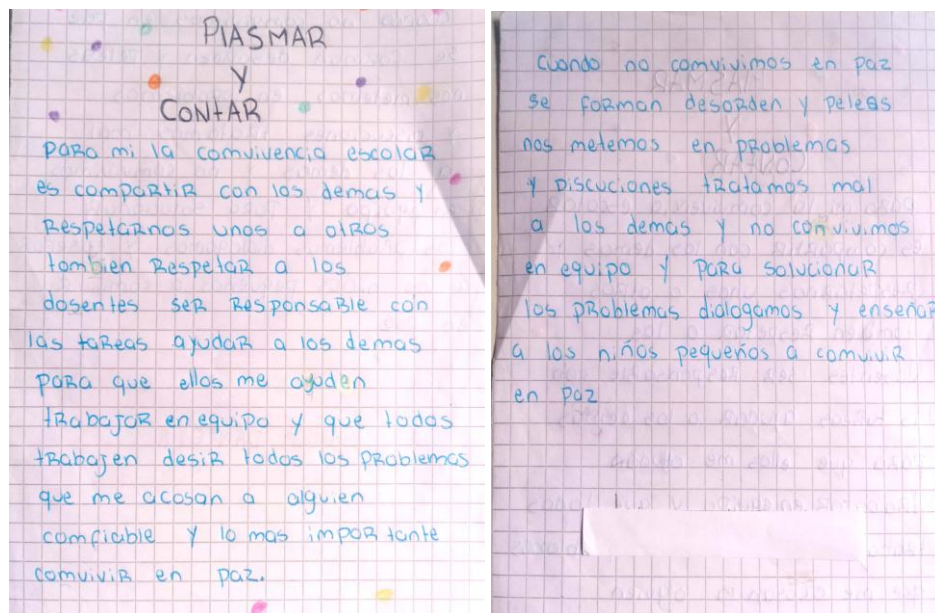 PlASMAR
Y
CONtAR
PARA mi la comvivencia escolaR
es compaRtiR con los demas y
RespetaRnos unos a otRos
tombien RespetaR a los
dosentes seR ResponsaBle con
las taReas ayudaR a los demas
paRa que ellos me ayuden
tRabajoR en equipo y que todos
tRabajen desiR todos los pRoblemas
que me acosan a alguien
comfiable y lo mas impoRtante
comviviR en paz.
cuando no comvivimos en paz
se foRman desoRden y peleas
nos metemos en pRoblemas
y Discuciones tRatamos mal
a los demas y no convivimos
en equipo y paRa solucionaR
los pRoblemas dialogamos y enseñaR
a los niños pequeños a comviviR
en paz